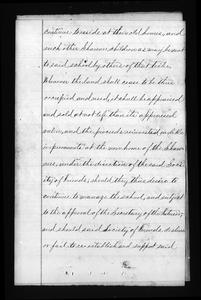 continue to reside at their old homes, and
such other Shawnee children as may be sent
to said school by others of that tribe.
Whenever the land shall cease to be thus
occupied and used, it shall be appraised
and sold at not less than its appraised
value, and the proceeds reinvested in like
improvements at the new home of the Shaw-
nees, under the direction of the said Soci-
ety of Friends, should they thus desire to
continue to manage the school, and subject
to the approval of the Secretary of the Interior;
and should said Society of Friends decline
or fail to reestablish and support said